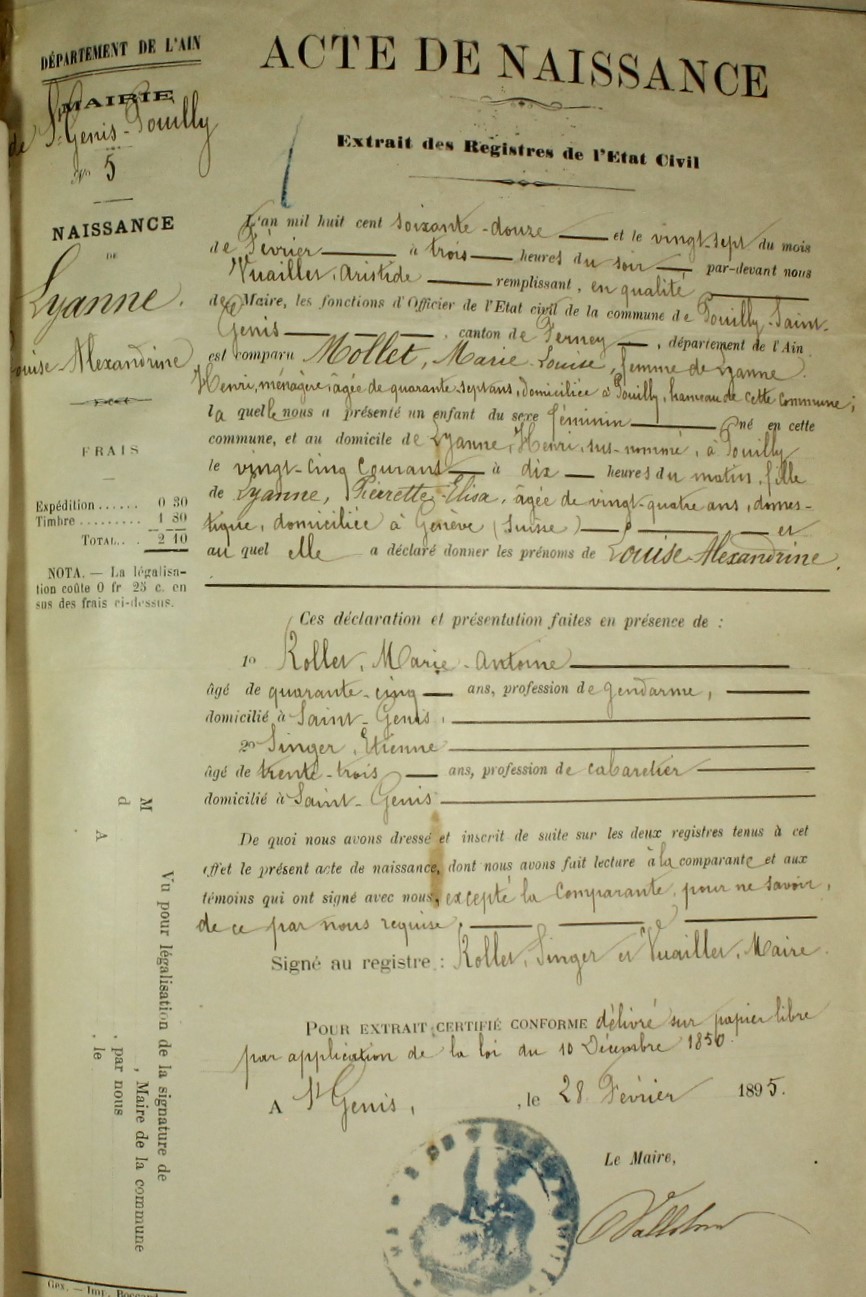 DÉPARTEMENT DE L'AIN
MAIRIE
de St Genis-Pouilly
No 5
NAISSANCE
DE
Lyanne.
Louise-Alexandrine
FRAIS
Expédition ...... 0 30
Timbre ......... 1 80
TOTAL... 2 10
NOTA. — La légalisa-
tion coûte 0 fr 25 c. en
sus des frais ci-dessus.
ACTE DE NAISSANCE
Extrait des Registres de l'Etat Civil
L'an mil huit cent soixante-douze et le vingt-sept du mois
de Février à trois heures du soir par-devant nous
Vuaillet, Aristide remplissant, en qualité
de Maire, les fonctions d'Officier de l'Etat civil de la commune de Pouilly-Saint-
Genis, canton de Ferney, département de l'Ain
est comparu Mollet, Marie-Louise, femme de Lyanne
Henri, ménagère, âgée de quarante-sept ans, domiciliée à Pouilly, hameau de cette commune;
la quelle nous a présenté un enfant du sexe féminin né en cette
commune, et au domicile de Lyanne, Henri, sus-nommé, à Pouilly
le vingt-cinq courant à dix heures du matin, fille
de Lyanne, Pierrette-Elisa, âgée de vingt-quatre ans, domes-
tique, domiciliée à Genève (Suisse) et
au quel elle a déclaré donner les prénoms de Louise-Alexandrine.
Ces déclaration et présentation faites en présence de :
1o Rollet, Marie-Antoine
âgé de quarante-cinq ans, profession de gendarme,
domicilié à Saint-Genis,
2o Singer, Etienne
âgé de trente-trois ans, profession de cabaretier
domicilié à Saint-Genis
De quoi nous avons dressé et inscrit de suite sur les deux registres tenus à cet
effet le présent acte de naissance, dont nous avons fait lecture à la comparante et aux
témoins qui ont signé avec nous, excepté la Comparante, pour ne savoir,
de ce par nous requise,
Signé au registre : Rollet, Singer et Vuaillet, Maire.
POUR EXTRAIT CERTIFIÉ CONFORME délivré sur papier libre
par application de la loi du 10 Décembre 1850.
A St Genis, , le 28 Février 1895.
Le Maire,
Vu pour légalisation de la signature de
M , Maire de la commune
d , par nous
A , le
Gex. — Imp.